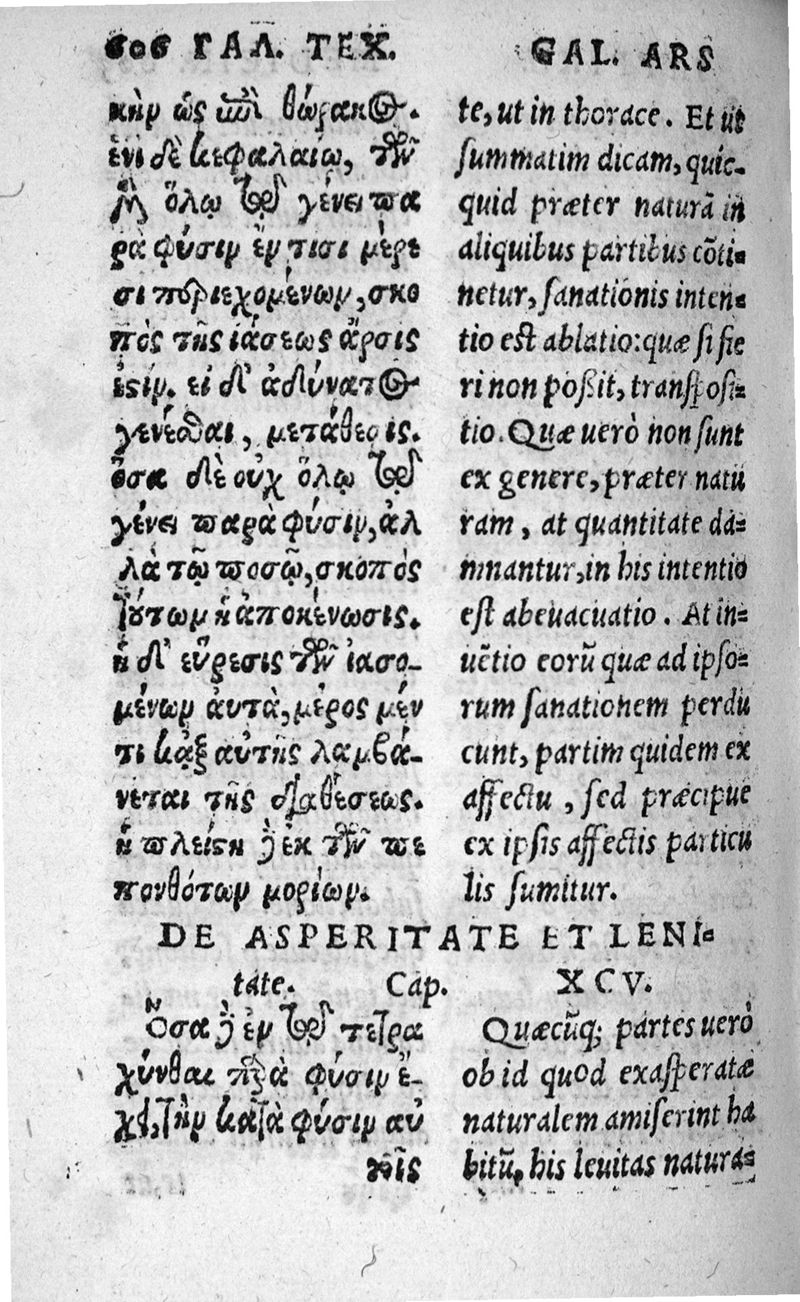 σοσ ΓΑΛ. ΤΕΧ.
GAL. ARS
κὴν ὡς ἐπὶ θώρακος.
ἑνὶ δὲ κεφαλαίῳ, τῶν
ὅλῳ τῷ γένει πα
ρὰ φύσιν ἔν τισι μέρε
σι περιεχομένων, σκο
πὸς τῆς ἰάσεως ἄρσις
ἐστίν. εἰ δ' ἀδύνατος
γενέσθαι, μετάθεσις.
ὅσα δὲ οὐχ ὅλῳ τῷ
γένει παρὰ φύσιν, ἀλ
λὰ τῷ ποσῷ, σκοπὸς
τούτων ἡ ἀποκένωσις.
ἡ δ' εὕρεσις τῶν ἰασο-
μένων αὐτὰ, μέρος μέν
τι κἀξ αὐτῆς λαμβά-
νεται τῆς διαθέσεως.
ἡ πλείστη δὲ ἐκ τῶν πε
πονθότων μορίων.
te, ut in thorace. Et ut
summatim dicam, quic-
quid præter naturā in
aliquibus partibus cōti-
netur, sanationis inten-
tio est ablatio: quæ si fie
ri non poßit, transposi-
tio. Quæ uerò non sunt
ex genere, præter natu
ram, at quantitate da-
mnantur, in his intentio
est abeuacuatio. At in-
uētio eorū quæ ad ipso-
rum sanationem perdu
cunt, partim quidem ex
affectu, sed præcipue
ex ipsis affectis particu
lis sumitur.
DE ASPERITATE ET LENI-
tate. Cap. XCV.
Ὅσα δὲ ἐν τῷ τετρα
χύνθαι παρὰ φύσιν ἔ-
χει, τὴν κατὰ φύσιν αὐ
τοῖς
Quæcūq; partes uerò
ob id quod exasperatæ
naturalem amiserint ha
bitū, his leuitas natura-